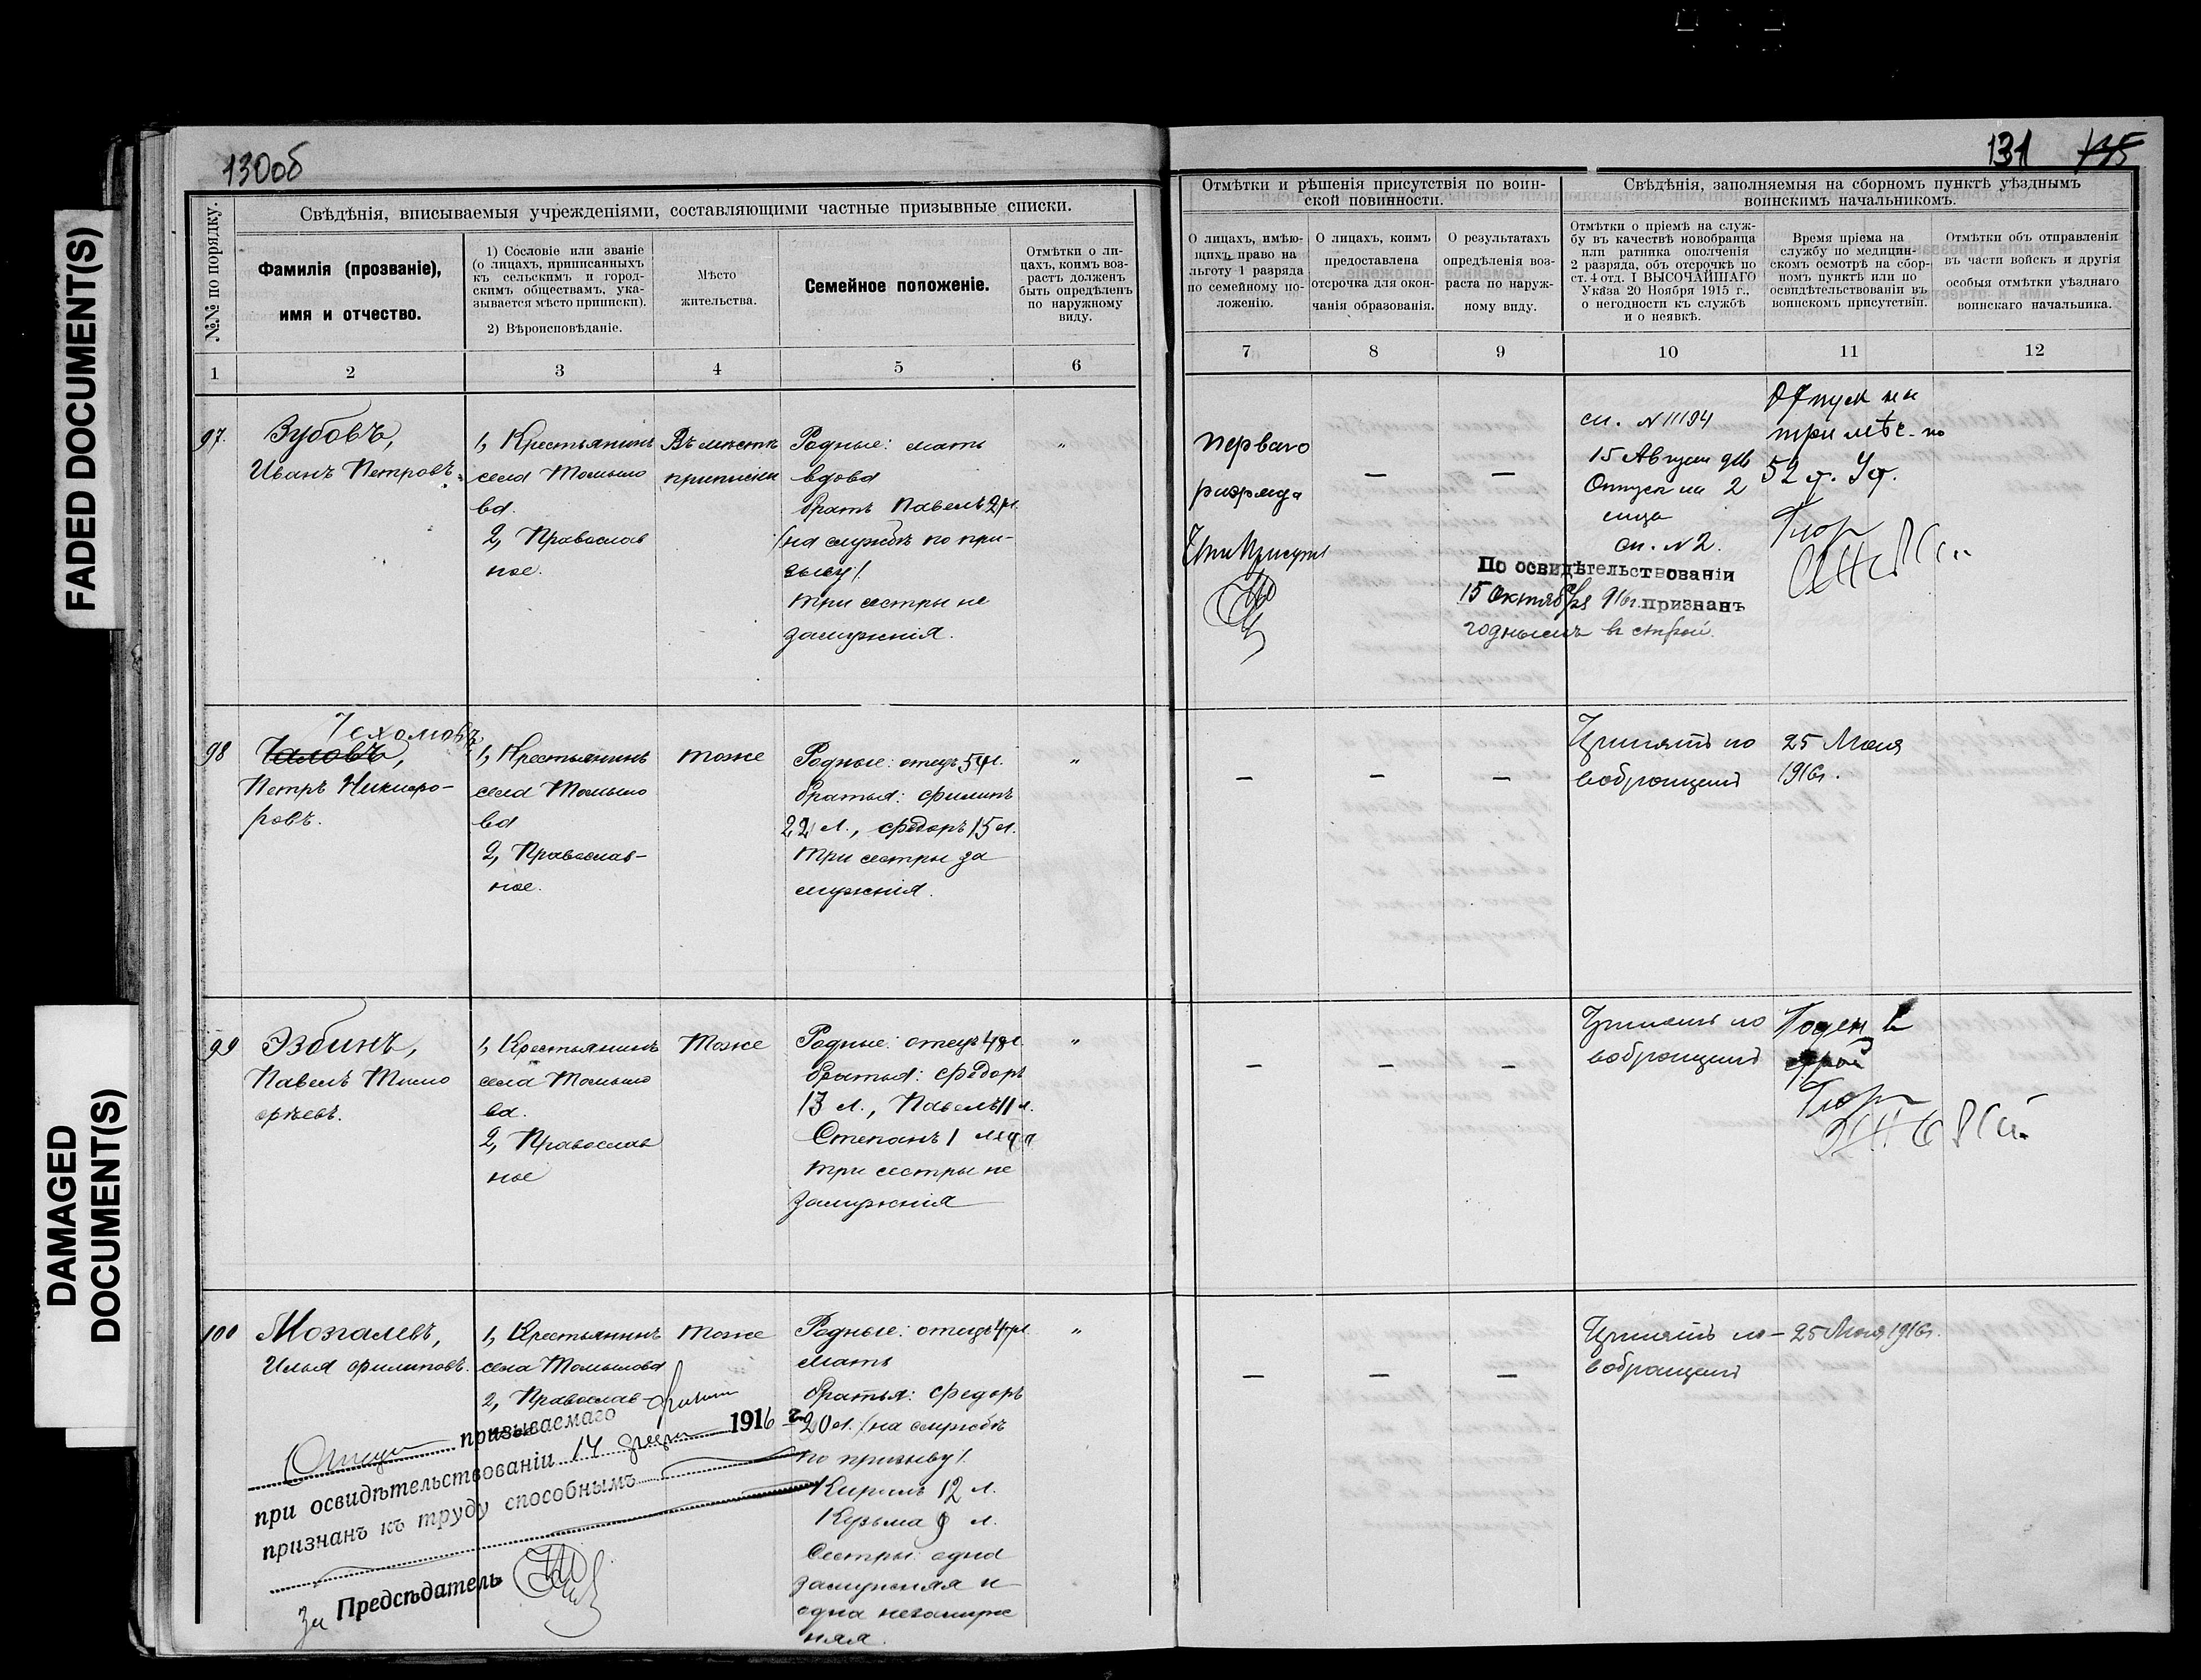 130об
131 135
FADED DOCUMENT(S)
DAMAGED
DOCUMENT(S)
Свѣдѣнія, вписываемыя учрежденіями, составляющими частные призывные списки.
№№ по порядку.
Фамилія (прозваніе),
имя и отчество.
1) Сословіе или званіе
(о лицахъ, приписанныхъ
къ сельскимъ и город-
скимъ обществамъ, ука-
зывается мѣсто приписки).
2) Вѣроисповѣданіе.
Мѣсто
жительства.
Семейное положеніе.
Отмѣтки о ли-
цахъ, коимъ воз-
растъ долженъ
быть опредѣленъ
по наружному
виду.
1 2 3 4 5 6
Отмѣтки и рѣшенія присутствія по воин-
ской повинности.
Свѣдѣнія, заполняемыя на сборномъ пунктѣ уѣзднымъ
воинскимъ начальникомъ.
О лицахъ, имѣю-
щихъ право на
льготу 1 разряда
по семейному по-
ложенію.
О лицахъ, коимъ
предоставлена
отсрочка для окон-
чанія образованія.
О результатахъ
опредѣленія воз-
раста по наруж-
ному виду.
Отмѣтки о пріемѣ на служ-
бу въ качествѣ новобранца
или ратника ополченія
2 разряда, объ отсрочкѣ по
ст. 4 отд. I ВЫСОЧАЙШАГО
Указа 20 Ноября 1915 г.,
о негодности къ службѣ
и о неявкѣ.
Время пріема на
службу по медицин-
скомъ осмотрѣ на сбор-
номъ пунктѣ или по
освидѣтельствованіи въ
воинскомъ присутствіи.
Отмѣтки объ отправленіи
въ части войскъ и другія
особыя отмѣтки уѣзднаго
воинскаго начальника.
7 8 9 10 11 12
97.
Зубовъ,
Иванъ Петровъ.
1, Крестьянинъ
села Томыло
ва.
2, Православ
ное.
Въ мѣстѣ
приписки
Родные: мать
вдова
братъ Павелъ 2 л.
(на службѣ по при-
зыву).
три сестры не
замужнія.
"
Перваго
разряда
—
—
сп. № 11194
15 Августа 916
Отпускъ на 2
сп. № 2.
По освидѣтельствованіи
15 Октября 916г. признанъ
годнымъ въ строй.
Отпуск на
три мѣс. по
98
Чаловъ,
Петръ Никифо-
ровъ.
1, Крестьянинъ
села Томыло
ва
2, Православ-
ное.
тоже
Родные: отецъ 54 л.
братья: Филипъ
22 л., Федоръ 15 л.
три сестры за
мужнія.
"
—
—
—
Принятъ но
вобранцемъ
25 Мая
1916г.
99
Эзбинъ,
Павелъ Тимо
феевъ.
1, Крестьянинъ
села Томыло
ва.
2, Православ
ное
Тоже
Родные: отецъ 48 л.
братья: Федоръ
13 л., Павелъ 11 л.
Степанъ 1 года
три сестры не
замужнія
"
—
—
—
Принятъ но
вобранцемъ
Годен в
строй
100
Мозгалевъ,
Илья Филиповъ.
1, Крестьянинъ
села Томылова
2, Православ
тоже
Родные: отецъ 47 л.
мать
братья: Федоръ
20 л. (на службѣ
по призыву).
Кирилъ 12 л.
Кузьма 9 л.
Сестры: одна
замужняя и
одна незамуж
няя.
"
—
—
—
Принятъ но-
вобранцемъ
25 Мая 1916г.
Отецъ призываемаго 1916 г.
при освидѣтельствованіи 14
признанъ къ труду способнымъ
За Предсѣдатель